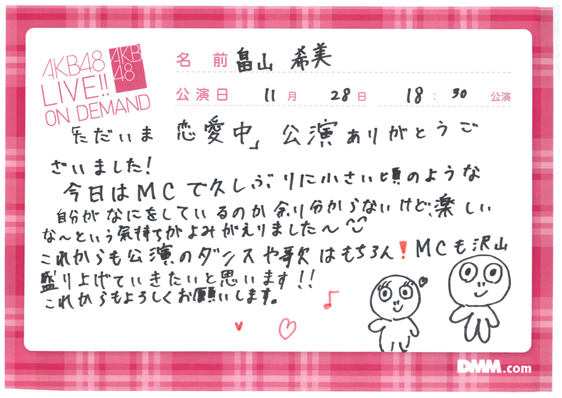 AKB48
LIVE!!
ON DEMAND
AKB
48
名 前 畠山 希美
公演日 11月 28日 18:30 公演
「ただいま 恋愛中」公演ありがとうご
ざいました!
今日はMCで久しぶりに小さい頃のような
自分がなにをしているのか余り分からないけど、楽しい
な〜という気持ちがよみがえりました〜
これからも公演のダンスや歌はもちろん!MCも沢山
盛り上げていきたいと思います!!
これからもよろしくお願いします。
DMM.com